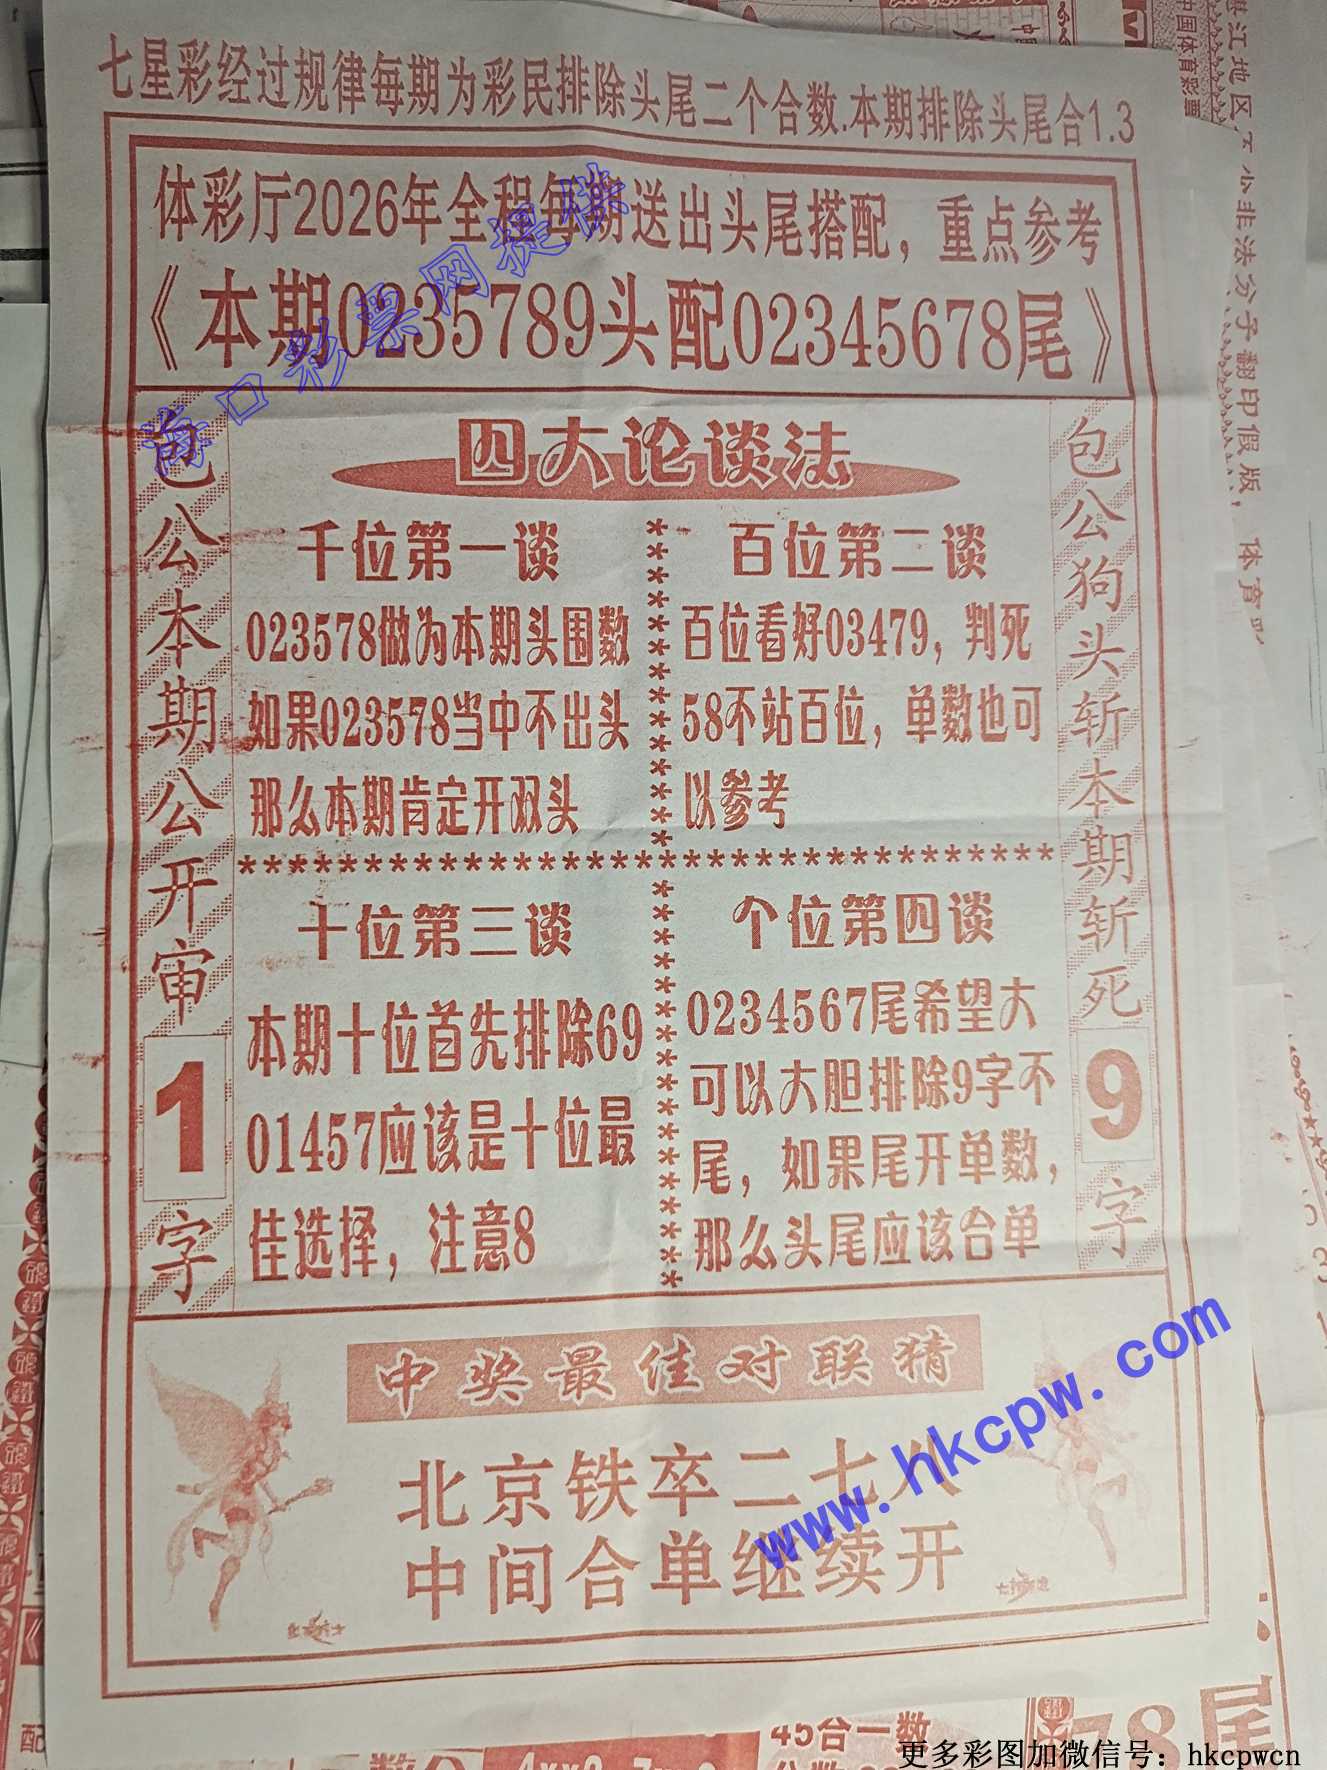 七星彩经过规律每期为彩民排除头尾二个合数.本期排除头尾合1.3
体彩厅2026年全程每期送出头尾搭配，重点参考
《本期0235789头配02345678尾》
海口彩票网提供
包公本期公开审1字
四大论谈法
千位第一谈
023578做为本期头围数
如果023578当中不出头
那么本期肯定开双头
百位第二谈
百位看好03479，判死
58不站百位，单数也可
以参考
十位第三谈
本期十位首先排除69
01457应该是十位最
佳选择，注意8
个位第四谈
0234567尾希望大
可以大胆排除9字不
尾，如果尾开单数，
那么头尾应该合单
包公狗头斩本期斩死9字
中奖最佳对联猜
北京铁卒二七八
中间合单继续开
www.hkcpw.com
港江地区
非法分子翻印假版，体育
中国体育彩票
45合一数
78尾
更多彩图加微信号：hkcpwcn